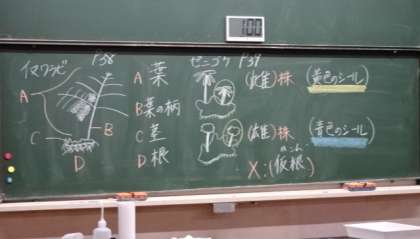 100
イヌワラビ P38
A 葉
B 葉の柄
C 茎
D 根
A
B
C
D
ゼニゴケ P39
(雌)株 (黄色のシール)
(雄)株 (青色のシール)
X:(仮根)
かこん